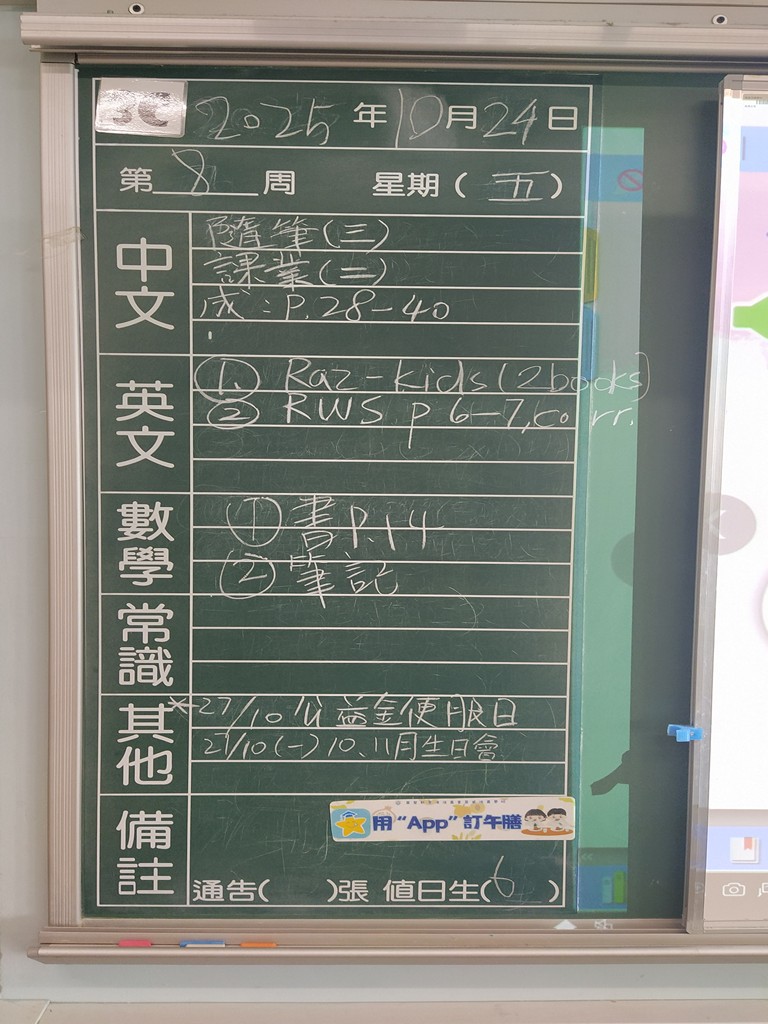 3C 2025年10月24日
第8周 星期(五)
中文
隨筆(三)
課業(二)
成:P.28-40
英文
① Raz-kids (2books)
② RWS p 6-7, corr.
數學
① 書P.14
② 筆記
常識
其他
*27/10 公益金便服日
27/10(一) 10、11月生日會
備註
用“App”訂午膳
通告( )張 值日生(6)